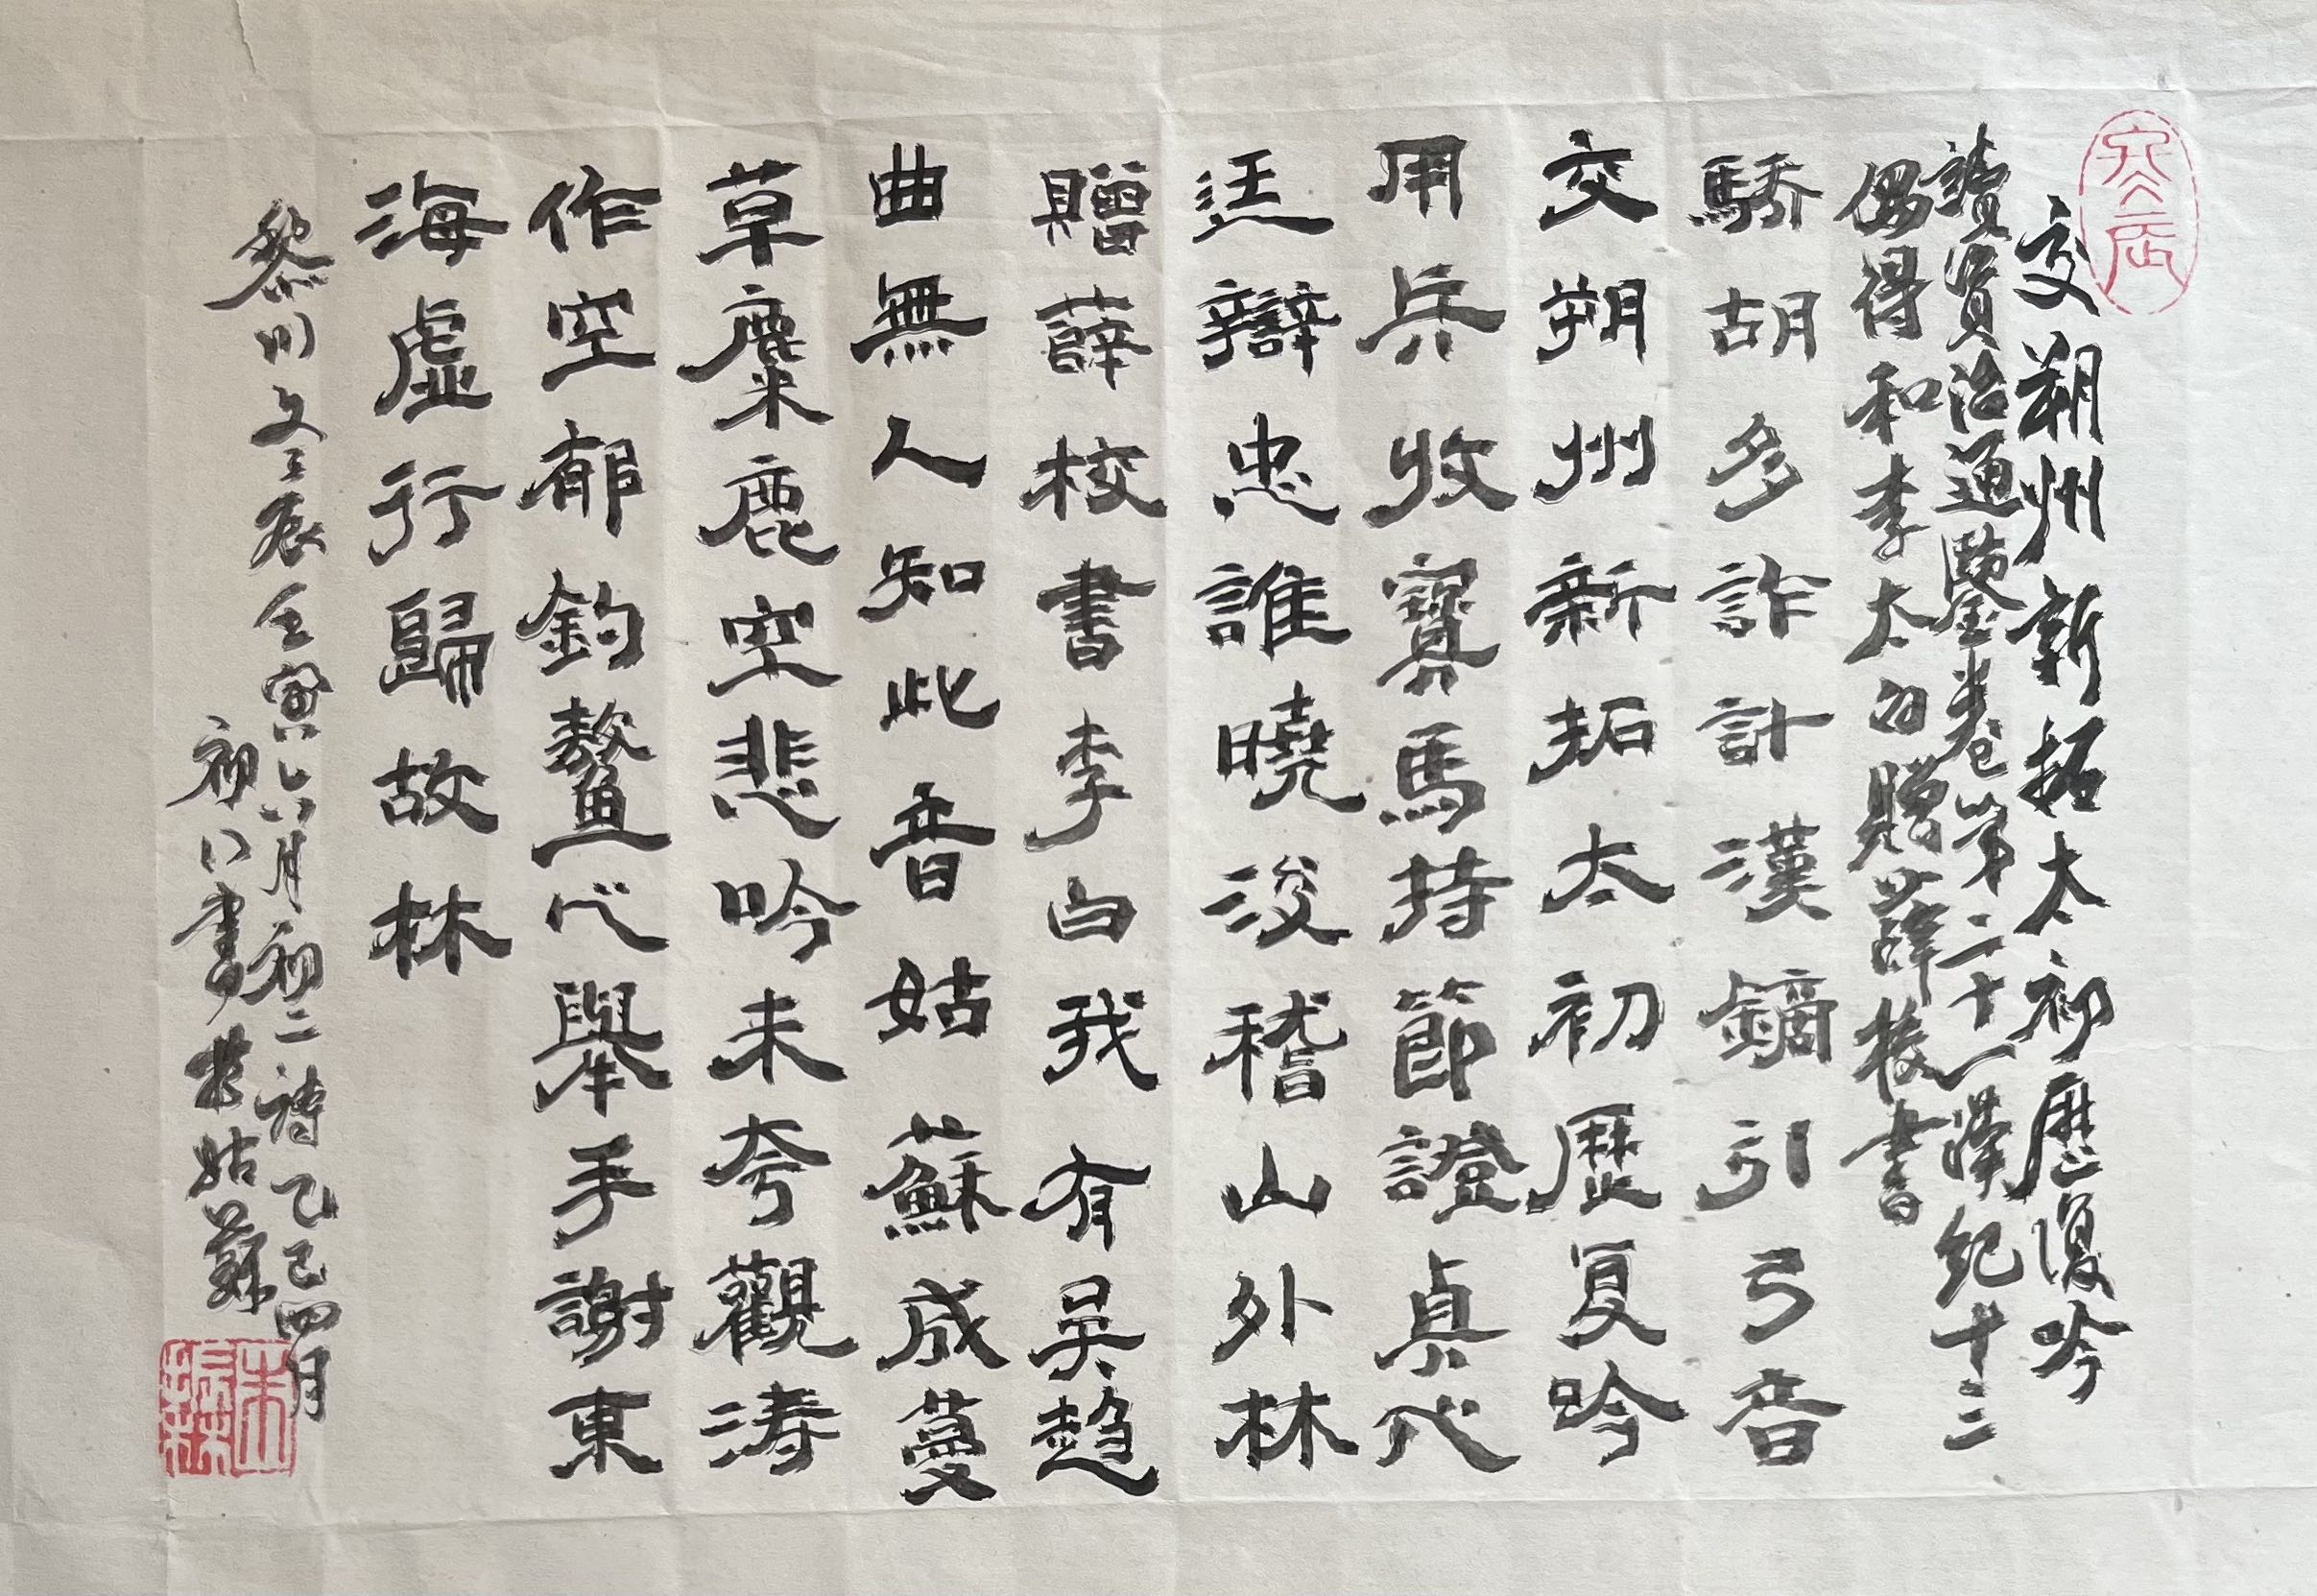 交朔州新拓太初歷復吟
讀資治通鑒卷第二十一漢紀十三
偶得和李太白贈薛校書
驕胡多詐計漢鏑引弓音
交朔州新拓太初歷夏吟
用兵收寶馬持節證貞代
廷辯忠誰曉浚稽山外林
贈薛校書李白我有吳趨
曲無人知此音姑蘇成蔓
草麋鹿空悲吟未夸觀濤
作空郁釣鰲代舉手謝東
海虛行歸故林
黎川文辰壬寅六月初二詩乙巳四月
初八書於姑蘇